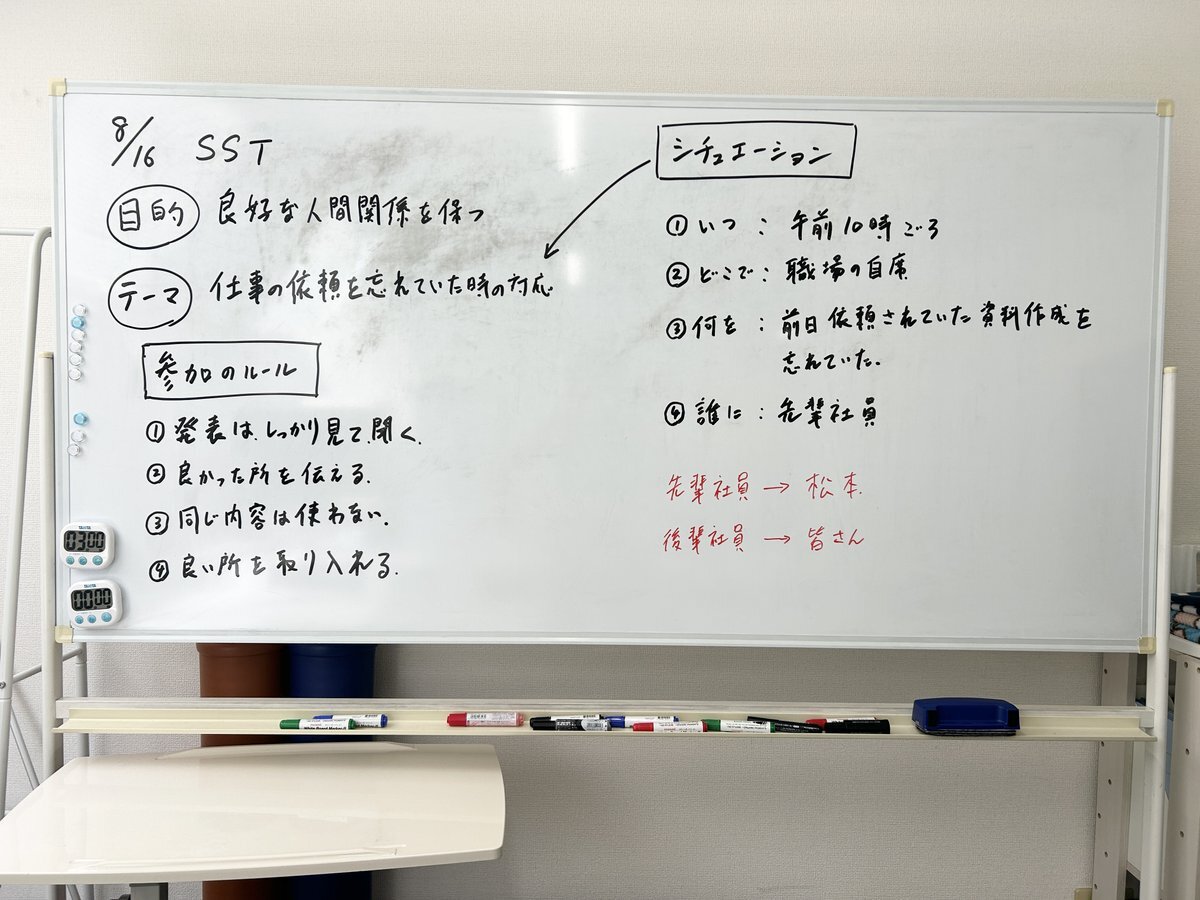 8/16 SST
目的 良好な人間関係を保つ
テーマ 仕事の依頼を忘れていた時の対応
参加のルール
① 発表は、しっかり見て、聞く。
② 良かった所を伝える。
③ 同じ内容は使わない。
④ 良い所を取り入れる。
シチュエーション
① いつ : 午前10時ごろ
② どこで : 職場の自席
③ 何を : 前日依頼されていた資料作成を
忘れていた。
④ 誰に : 先輩社員
先輩社員 → 松本
後輩社員 → 皆さん
TANITA
03:00
TANITA
00:00